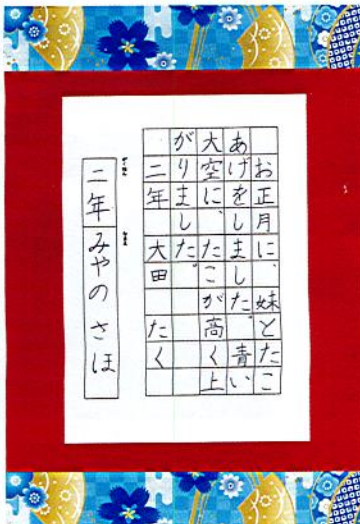 お正月に、妹とたこ
あげをしました。青い
大空に、たこが高く上
がりました。
二年 大田 たく
がくねん
なまえ
二年 みやの さほ